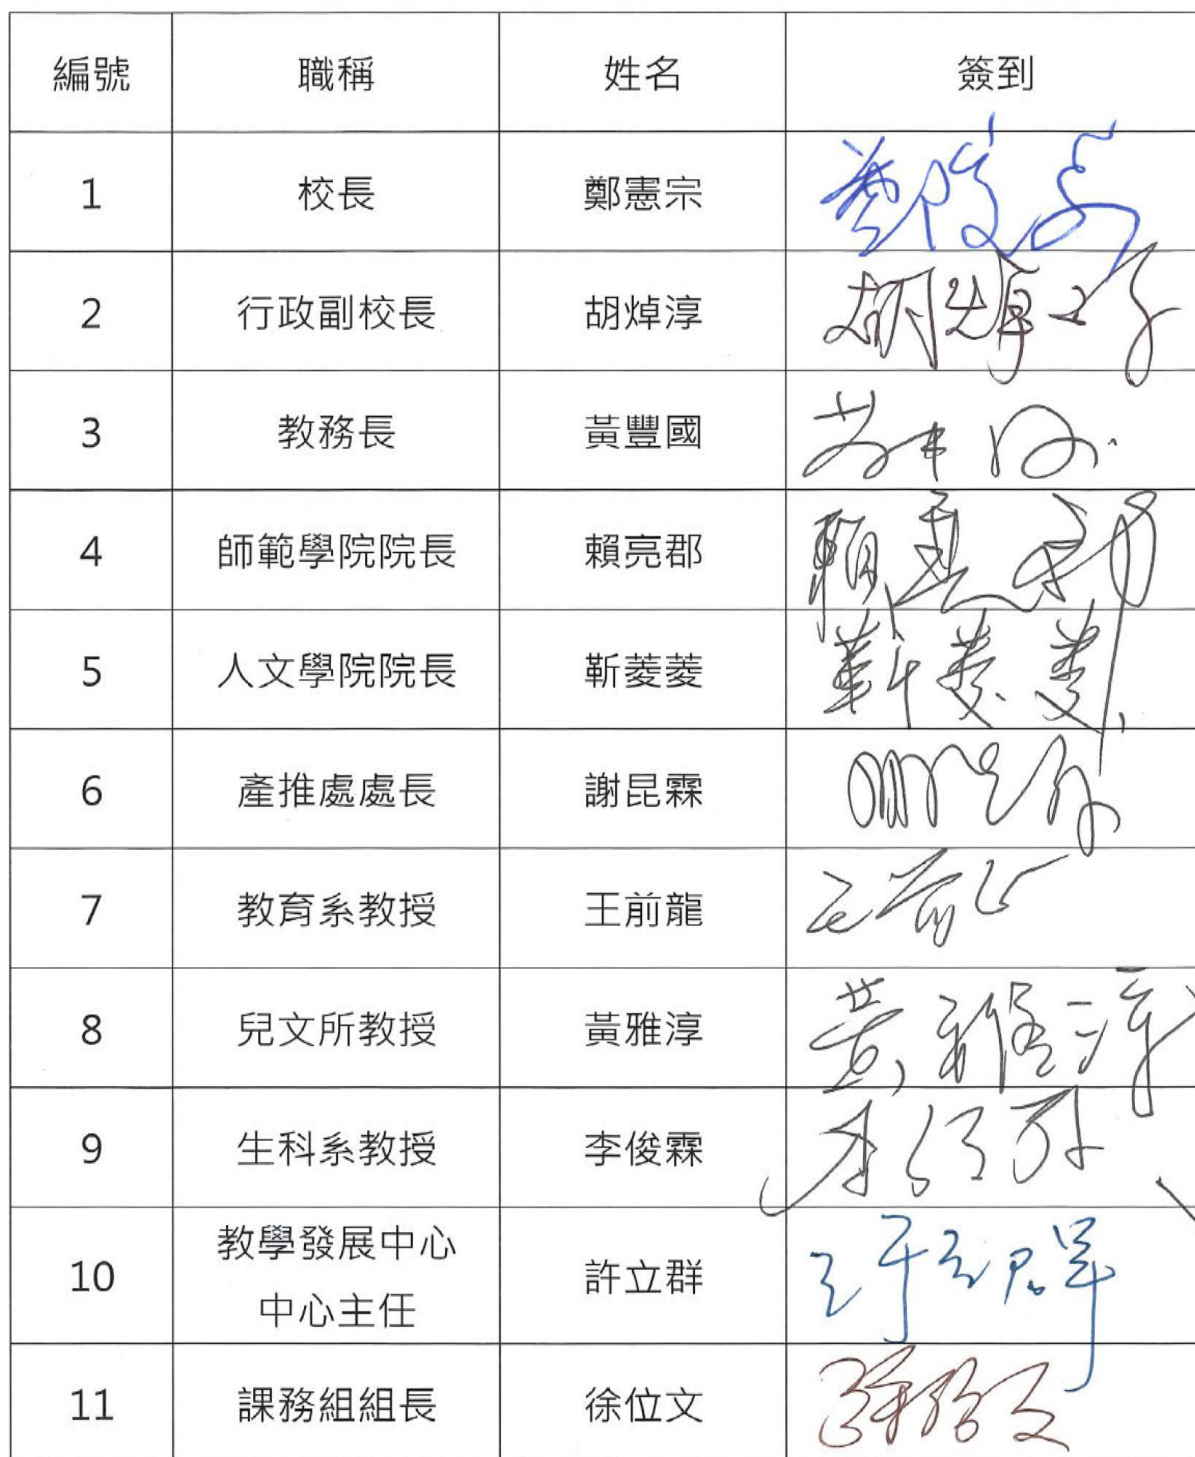 編號 職稱 姓名 簽到
1 校長 鄭憲宗
2 行政副校長 胡焯淳 胡焯淳
3 教務長 黃豐國
4 師範學院院長 賴亮郡 賴亮郡
5 人文學院院長 靳菱菱 靳菱菱
6 產推處處長 謝昆霖
7 教育系教授 王前龍
8 兒文所教授 黃雅淳 黃雅淳
9 生科系教授 李俊霖
10 教學發展中心
中心主任 許立群 許立群
11 課務組組長 徐位文